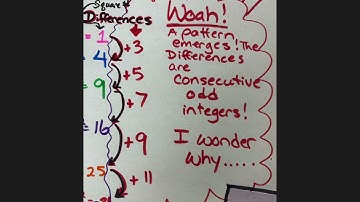 Square #
Differences
= 1
+3
= 4
+5
= 9
+7
= 16
+9
25
+11
Woah!
A pattern
emerges! The
Differences
are
consecutive
odd
integers!
I wonder
why.....